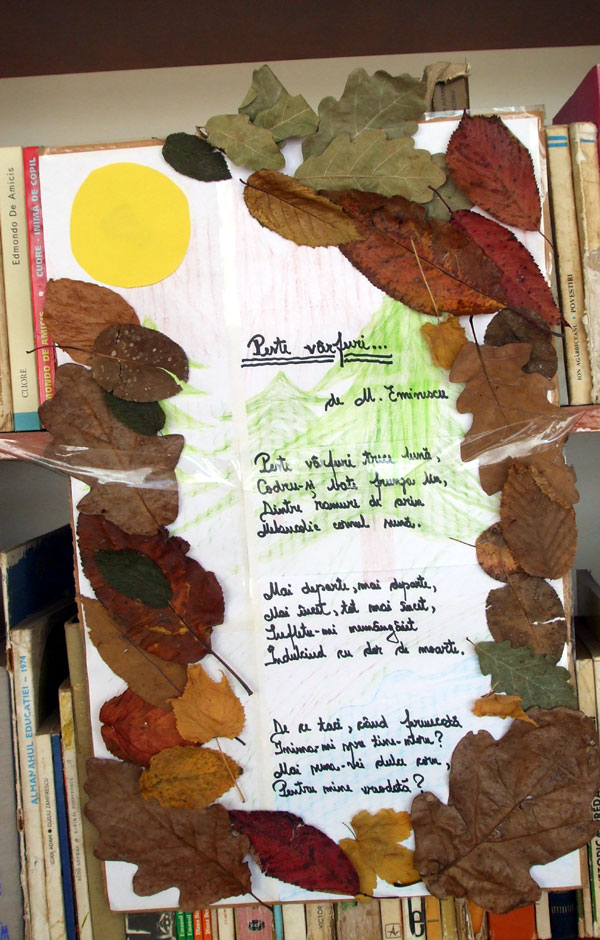 Peste vârfuri...
de M. Eminescu
Peste vârfuri trece lună,
Codru-și bate frunza lin,
Dintre ramuri de arin
Melancolic cornul sună.
Mai departe, mai departe,
Mai încet, tot mai încet,
Sufletu-mi nemângâiet
Îndulcind cu dor de moarte.
De ce taci, când fermecată
Inima-mi spre tine-ntorn?
Mai suna-vei dulce corn,
Pentru mine vreodată?
Edmondo De Amicis
CUORE
CUORE - INIMĂ DE COPIL
EDMONDO DE AMICIS
ION AGÂRBICEANU • POVESTIRI
ALMANAHUL EDUCAȚIEI - 1974
VICTOR